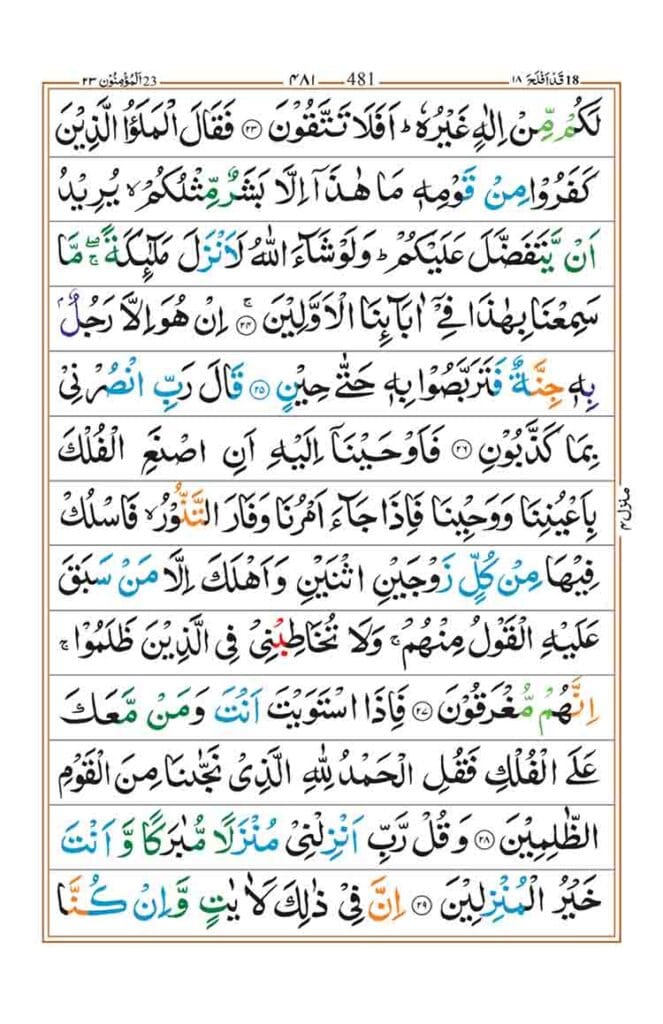 23 اَلْمُؤْمِنُوْن ٢٣ ٤٨١ 481 18 قَدْ اَفْلَحَ ١٨
لَكُمْ مِّنْ اِلٰهٍ غَيْرُهٗ ؕ اَفَلَا تَتَّقُوْنَ ۝٢٣ فَقَالَ الْمَلَؤُا الَّذِيْنَ
كَفَرُوْا مِنْ قَوْمِهٖ مَا هٰذَاۤ اِلَّا بَشَرٌ مِّثْلُكُمْ ۙ يُرِيْدُ
اَنْ يَّتَفَضَّلَ عَلَيْكُمْ ؕ وَلَوْ شَآءَ اللّٰهُ لَاَنْزَلَ مَلٰٓئِكَةً ۖۚ مَّا
سَمِعْنَا بِهٰذَا فِيْۤ اٰبَآئِنَا الْاَوَّلِيْنَ ۚ۝٢٤ اِنْ هُوَ اِلَّا رَجُلٌۢ
بِهٖ جِنَّةٌ فَتَرَبَّصُوْا بِهٖ حَتّٰى حِيْنٍ ۝٢٥ قَالَ رَبِّ انْصُرْنِيْ
بِمَا كَذَّبُوْنِ ۝٢٦ فَاَوْحَيْنَاۤ اِلَيْهِ اَنِ اصْنَعِ الْفُلْكَ
بِاَعْيُنِنَا وَوَحْيِنَا فَاِذَا جَآءَ اَمْرُنَا وَفَارَ التَّنُّوْرُ ۙ فَاسْلُكْ
فِيْهَا مِنْ كُلٍّ زَوْجَيْنِ اثْنَيْنِ وَاَهْلَكَ اِلَّا مَنْ سَبَقَ
عَلَيْهِ الْقَوْلُ مِنْهُمْ ۚ وَلَا تُخَاطِبْنِيْ فِي الَّذِيْنَ ظَلَمُوْا ۚ
اِنَّهُمْ مُّغْرَقُوْنَ ۝٢٧ فَاِذَا اسْتَوَيْتَ اَنْتَ وَمَنْ مَّعَكَ
عَلَى الْفُلْكِ فَقُلِ الْحَمْدُ لِلّٰهِ الَّذِيْ نَجّٰىنَا مِنَ الْقَوْمِ
الظّٰلِمِيْنَ ۝٢٨ وَقُلْ رَّبِّ اَنْزِلْنِيْ مُنْزَلًا مُّبٰرَكًا وَّاَنْتَ
خَيْرُ الْمُنْزِلِيْنَ ۝٢٩ اِنَّ فِيْ ذٰلِكَ لَاٰيٰتٍ وَّاِنْ كُنَّا
منزل ٤